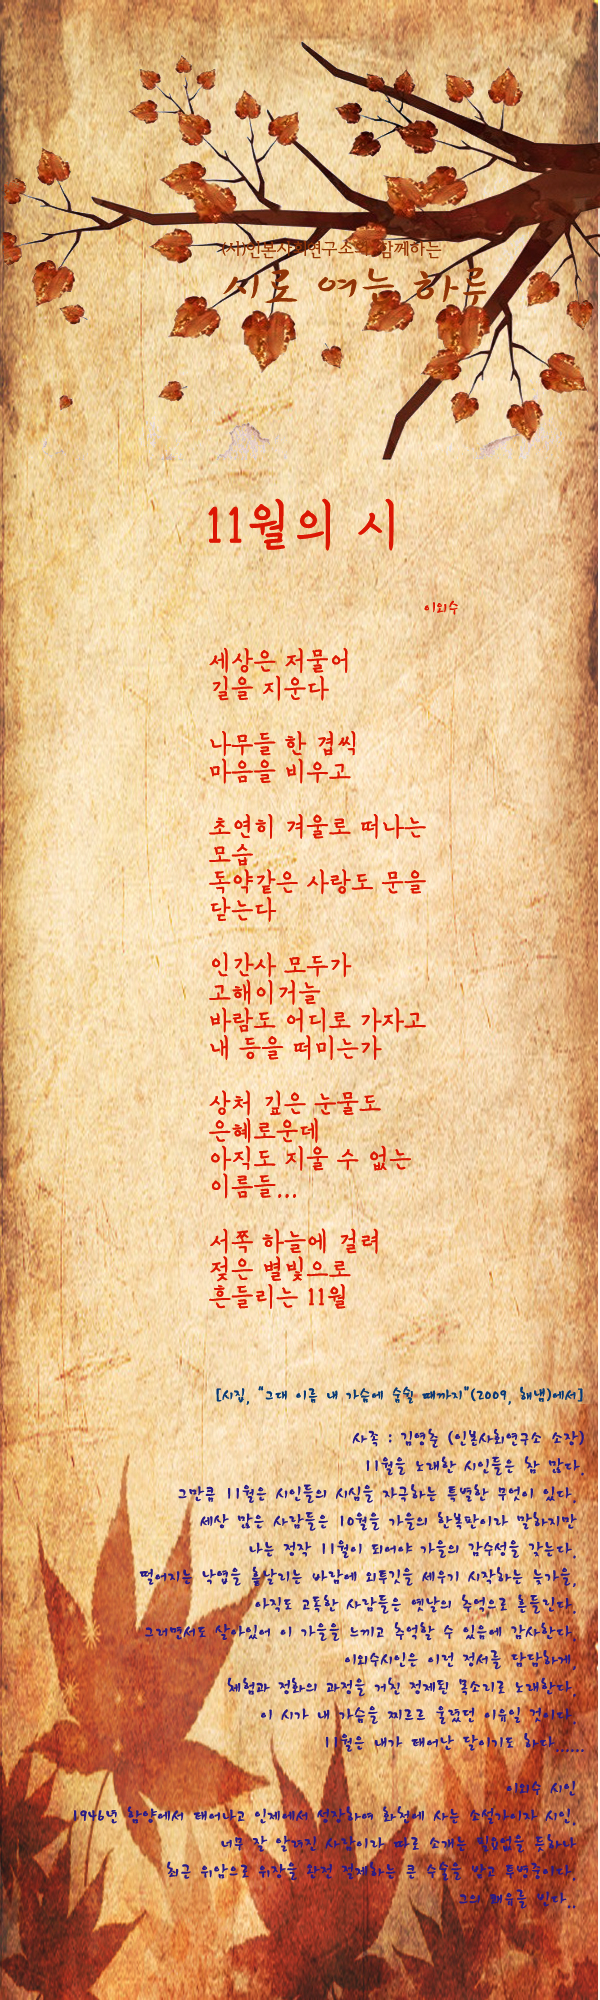 (사)인본사회연구소와 함께하는
시로 여는 하루
11월의 시
이외수
세상은 저물어
길을 지운다
나무들 한 겹씩
마음을 비우고
초연히 겨울로 떠나는
모습
독약같은 사랑도 문을
닫는다
인간사 모두가
고해이거늘
바람도 어디로 가자고
내 등을 떠미는가
상처 깊은 눈물도
은혜로운데
아직도 지울 수 없는
이름들...
서쪽 하늘에 걸려
젖은 별빛으로
흔들리는 11월
[시집, "그대 이름 내 가슴에 숨쉴 때까지"(2009, 해냄)에서]
사족 : 김영춘 (인본사회연구소 소장)
11월을 노래한 시인들은 참 많다.
그만큼 11월은 시인들의 시심을 자극하는 특별한 무엇이 있다.
세상 많은 사람들은 10월을 가을의 한복판이라 말하지만
나는 정작 11월이 되어야 가을의 감수성을 갖는다.
떨어지는 낙엽을 흩날리는 바람에 외투깃을 세우기 시작하는 늦가을,
아직도 고독한 사람들은 옛날의 추억으로 흔들린다.
그러면서도 살아있어 이 가을을 느끼고 추억할 수 있음에 감사한다.
이외수시인은 이런 정서를 담담하게,
체험과 정화의 과정을 거친 정제된 목소리로 노래한다.
이 시가 내 가슴을 찌르르 울렸던 이유일 것이다.
11월은 내가 태어난 달이기도 하다......
이외수 시인
1946년 함양에서 태어나고 인제에서 성장하여 화천에 사는 소설가이자 시인.
너무 잘 알려진 사람이라 따로 소개는 필요없을 듯하나
최근 위암으로 위장을 완전 절제하는 큰 수술을 받고 투병중이다.
그의 쾌유를 빈다..